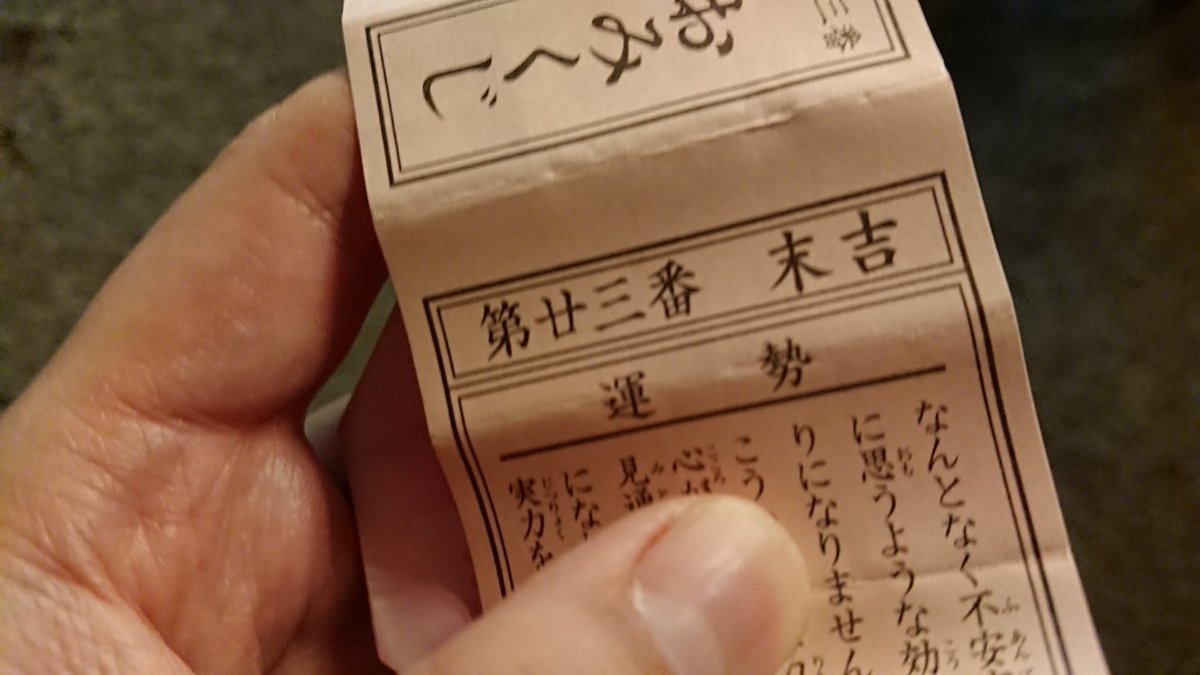 三番
おみくじ
第廿三番 末吉
運勢
なんとなく不安
に思うような効
りになりません
こう
心
見通
にな
実力を